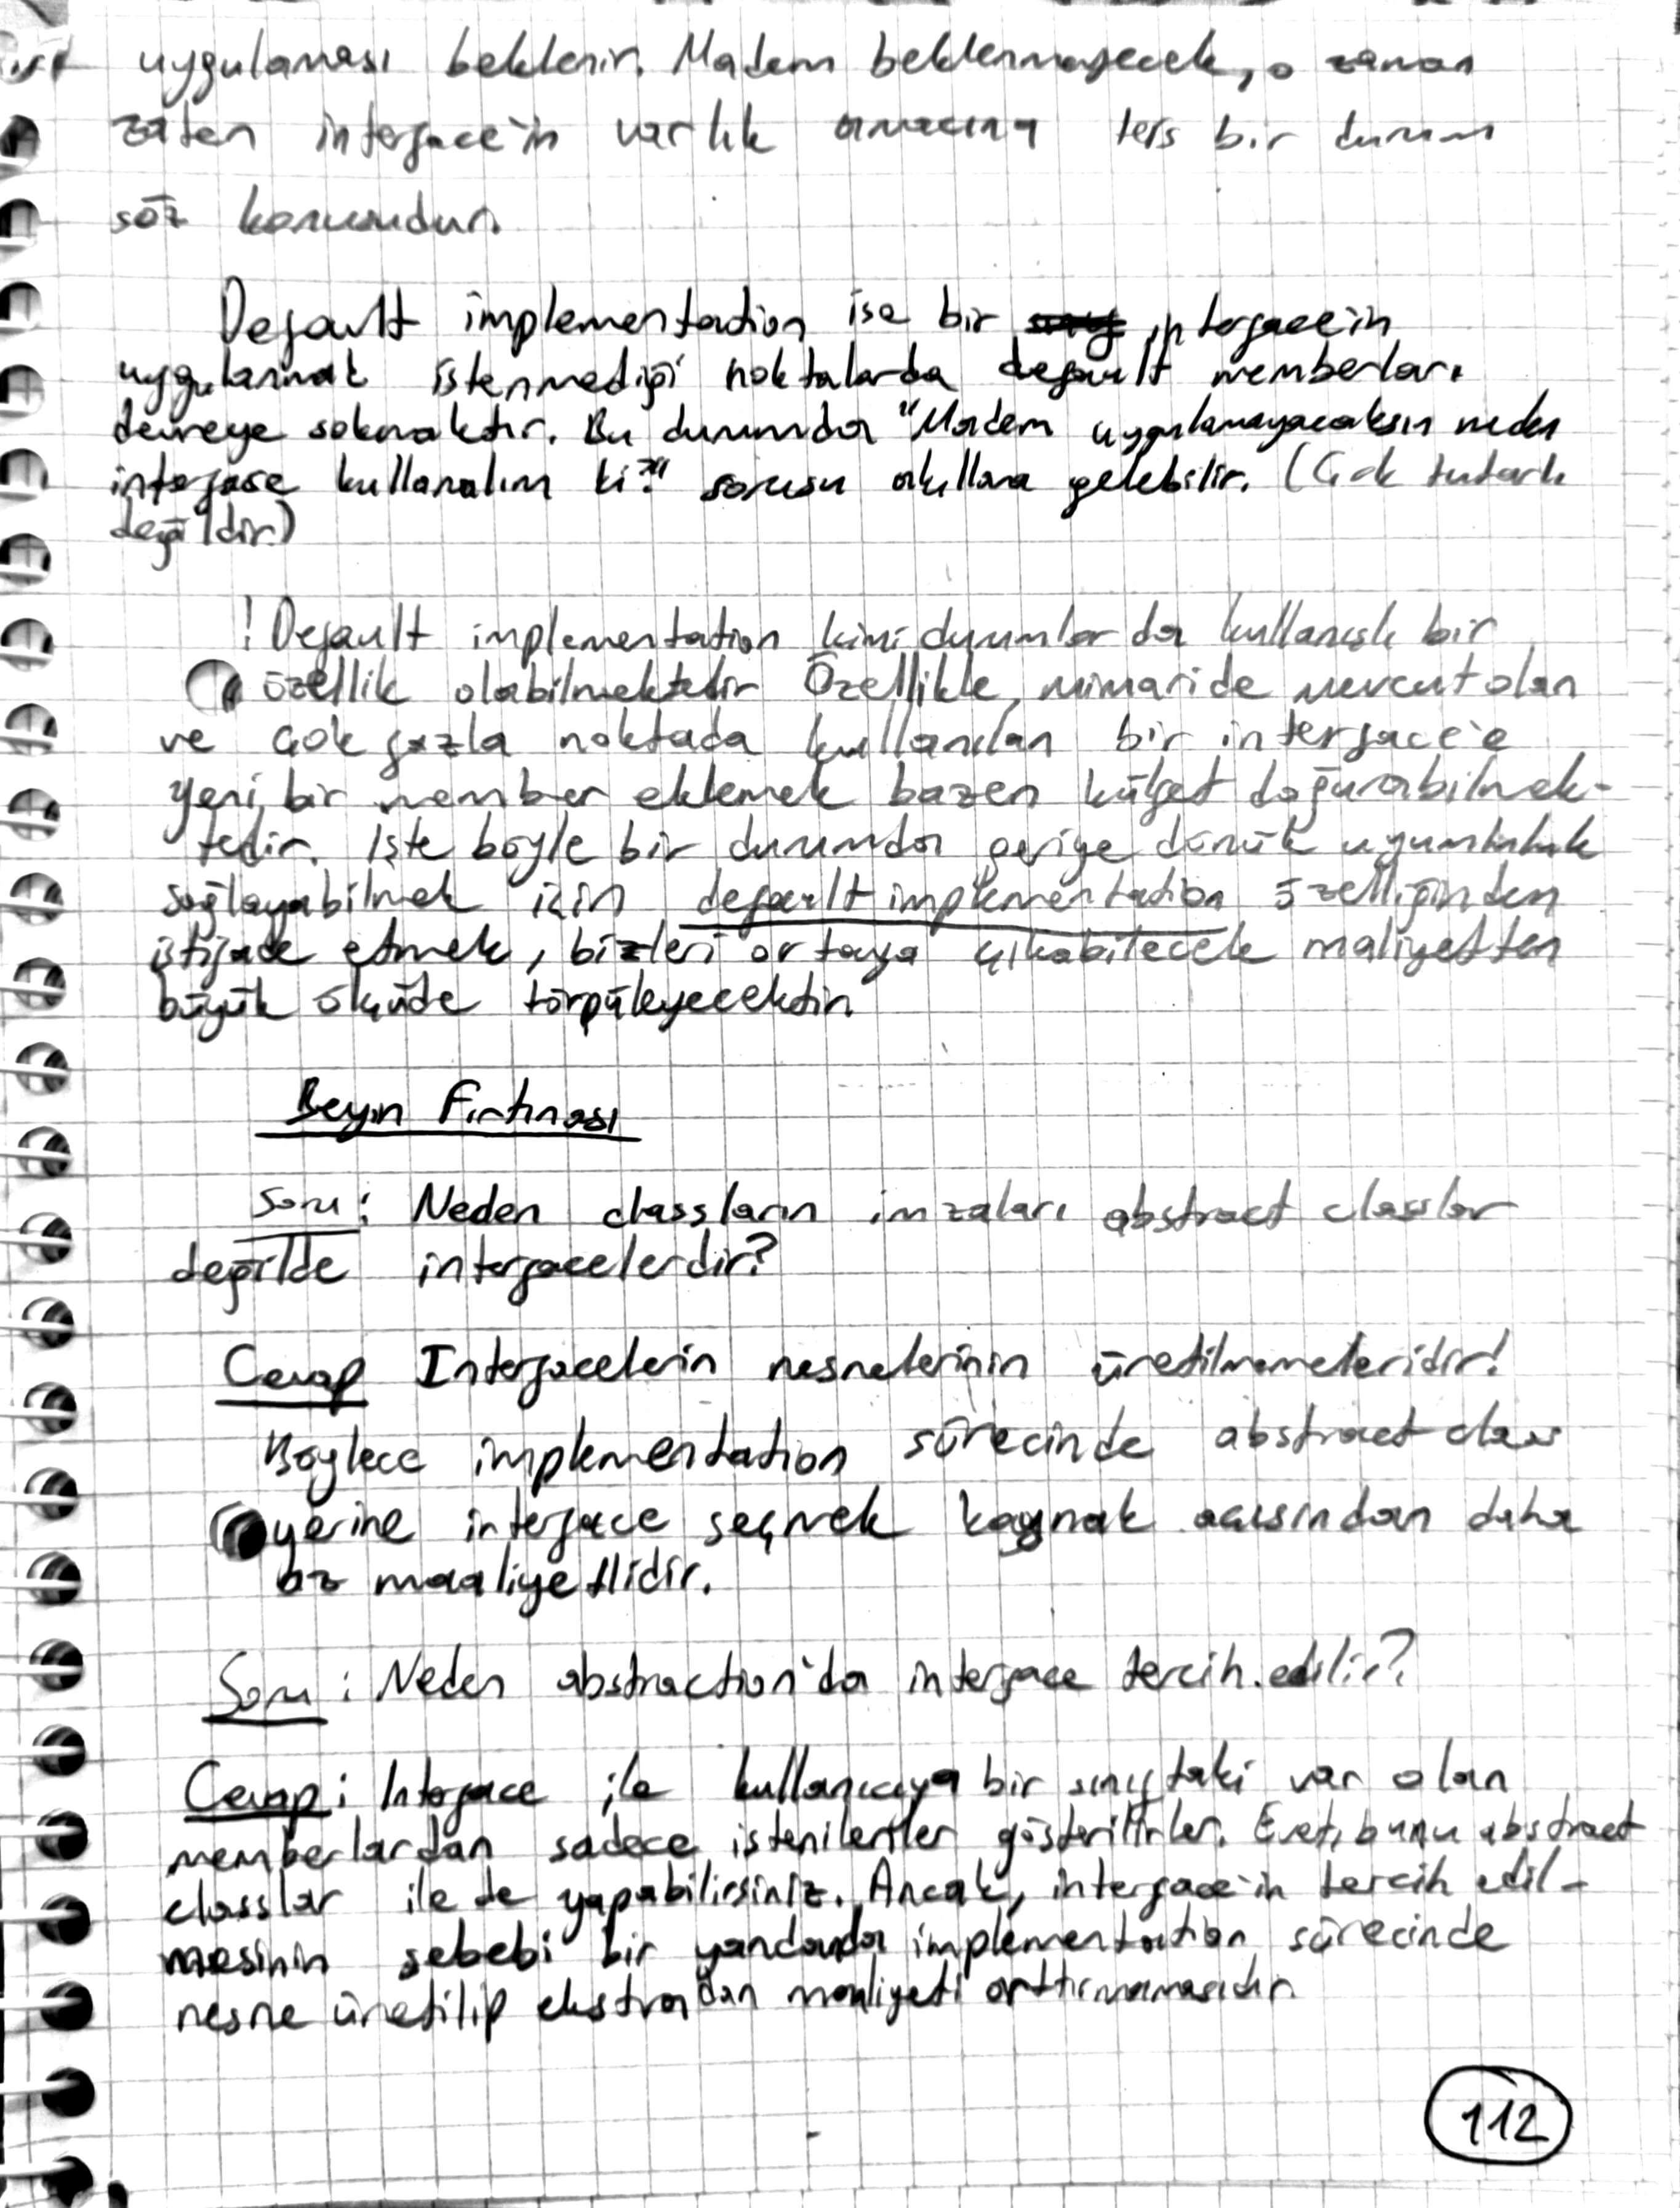 uygulaması beklenir. Madem beklenmeyecek, o zaman
zaten interface'in varlık amacına ters bir durum
söz konusudur.
Default implementation ise bir interface'in
uygulanmak istenmediği noktalarda default memberları
devreye sokmaktır. Bu durumda "Madem uygulamayacaksın neden
interface kullanalım ki?" sorusu akıllara gelebilir. (Çok tutarlı
değildir)
! Default implementation kimi durumlarda kullanışlı bir
özellik olabilmektedir Özellikle, mimaride mevcut olan
ve çok fazla noktada kullanılan bir interface'e
yeni bir member eklemek bazen külfet doğurabilmek-
tedir. İşte böyle bir durumda geriye dönük uyumluluk
sağlayabilmek için default implementation özelliğinden
istifade etmek, bizleri ortaya çıkabilecek maliyetten
büyük ölçüde törpüleyecektir.
Beyin Fırtınası
Soru: Neden classların imzaları abstract classlar
değilde interfacelerdir?
Cevap Interfacelerin nesnelerinin üretilmemeleridir!
Böylece implementation sürecinde abstract class
yerine interface seçmek kaynak açısından daha
az maaliyetlidir.
Soru: Neden abstraction'da interface tercih edilir?
Cevap: Interface ile kullanıcıya bir sınıftaki var olan
memberlardan sadece istenilenler gösterilirler. Evet, bunu abstract
classlar ile de yapabilirsiniz. Ancak, interface'in tercih edil-
mesinin sebebi bir yandanda implementation sürecinde
nesne üretilip ekstradan maliyeti arttırmamasıdır.
112